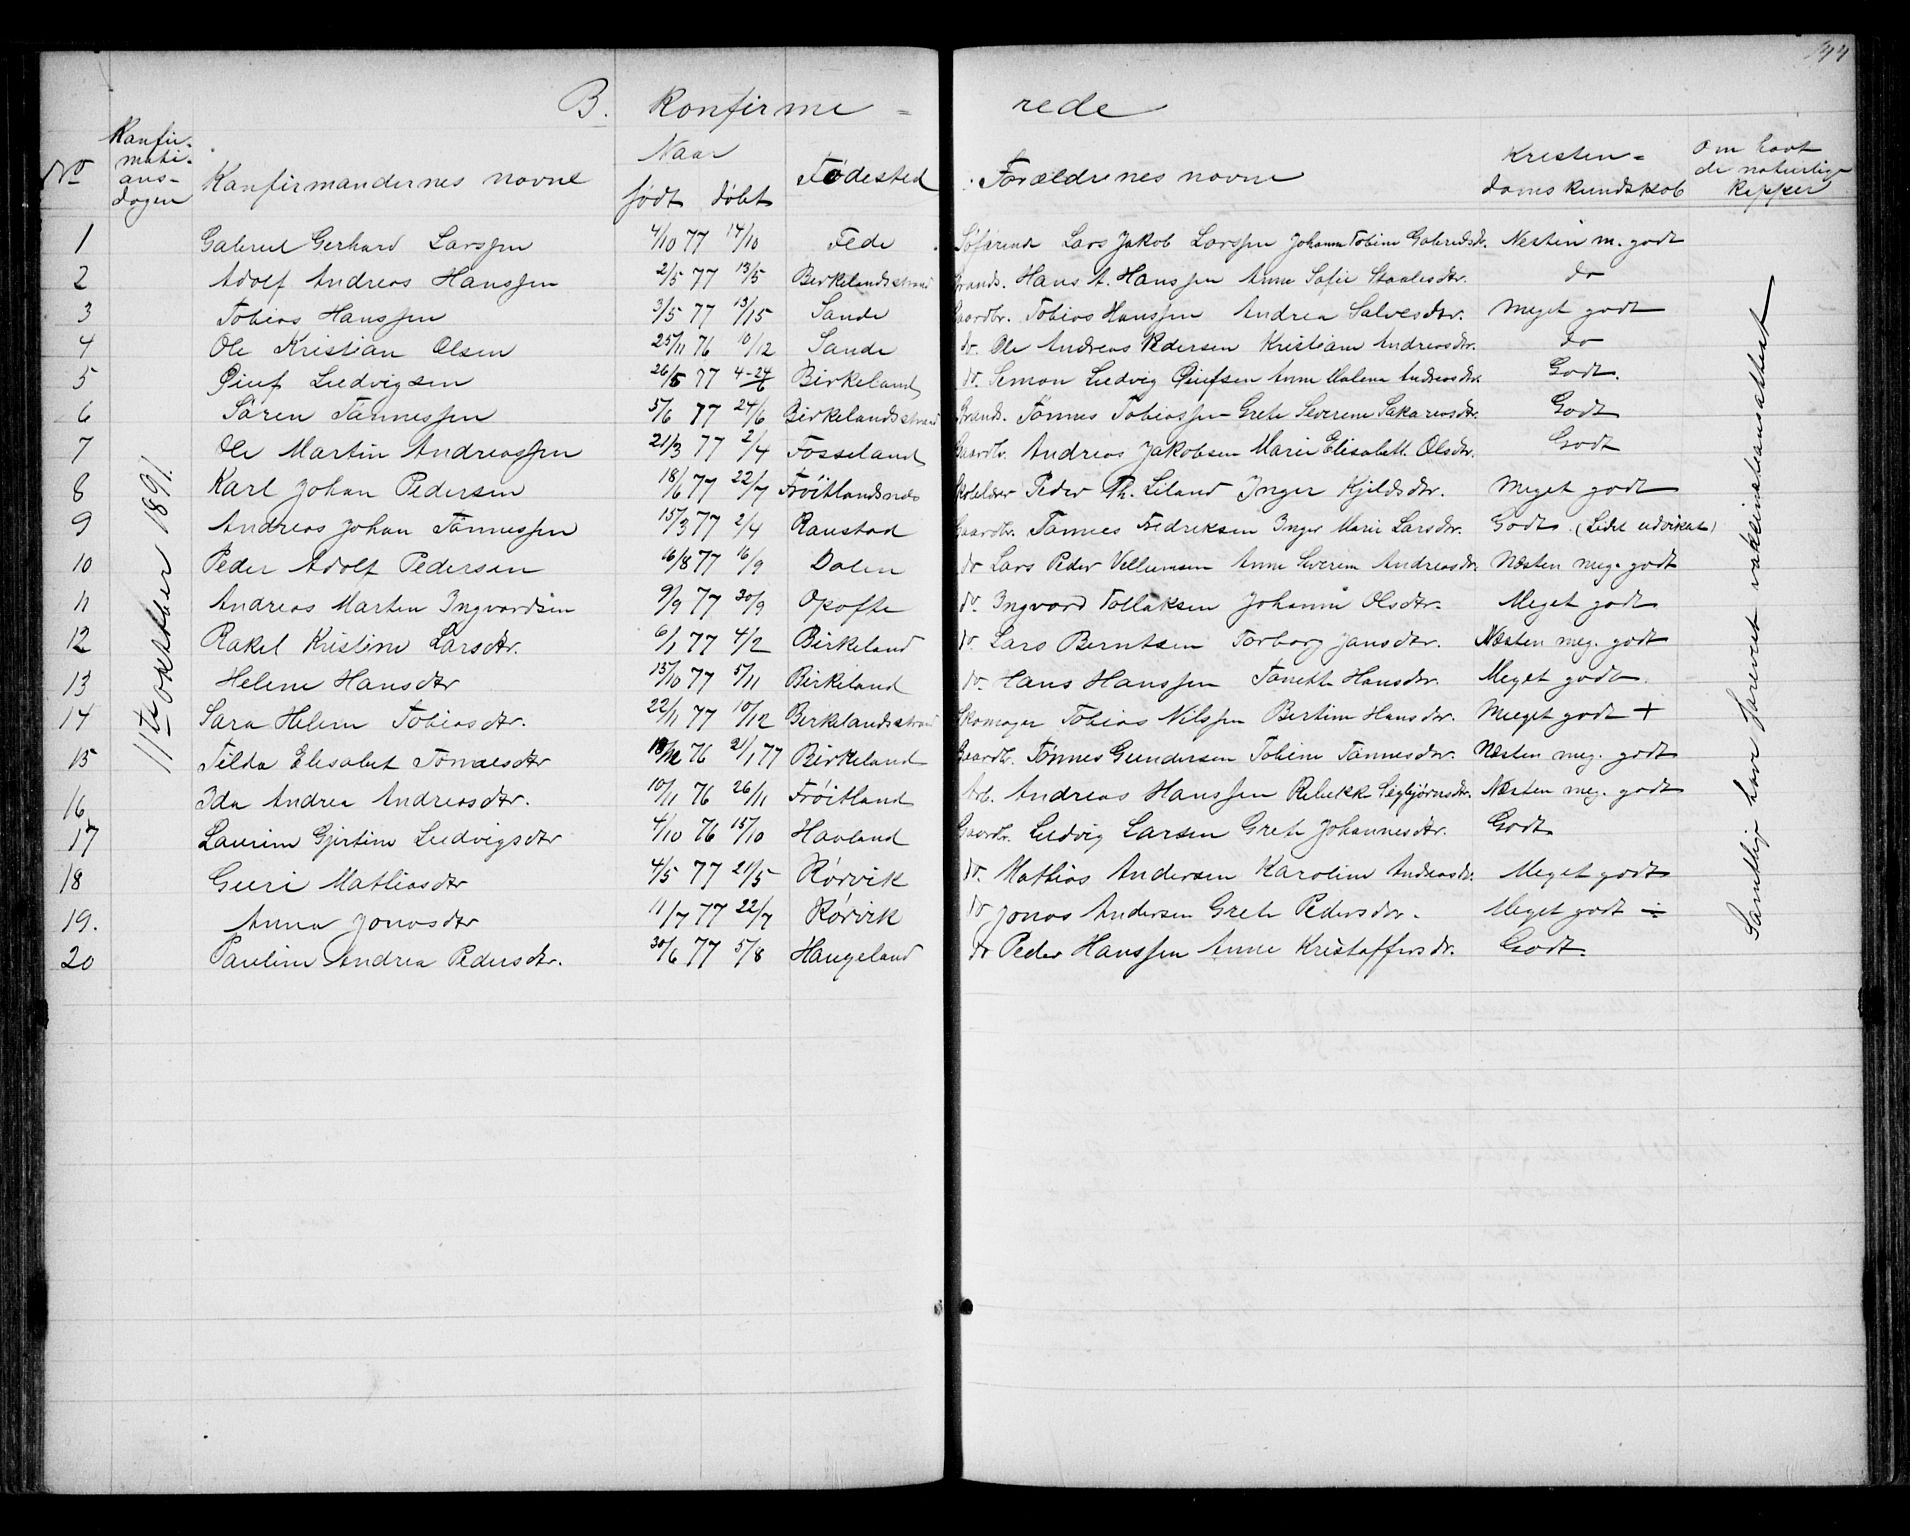 44
B. Konfirme = rede
No Konfir- mati- ons- dagen Konfirmandernes navne Naar født døbt Fødested Forældrenes navne Kristen= doms kundskab Om havt de naturlige Kopper
11te oktober 1891.
1 Gabriel Gerhard Larssen 4/10 77 14/10 Fede Søfarende Lars Jakob Larssen Johanne Tobine Gabrielsdr. Næsten m. godt
2 Adolf Andreas Hanssen 2/5 77 13/5 Birkelandsstrand Strands. Hans A. Hanssen Anne Sofie Staalesdtr. do
3 Tobias Hanssen 3/5 77 13/15 Sande Gaardbr. Tobias Hanssen Andrea Salvesdtr. Meget godt
4 Ole Kristian Olsen 25/11 76 10/12 Sande do. Ole Andreas Pedersen Kristiane Andreasdtr. do
5 Øiuf Ludvigsen 26/5 77 4-24/6 Birkeland do. Semon Ludvig Øiufsen Anne Malene Andreasdtr. Godt.
6 Søren Tønnessen 5/6 77 24/6 Birkelandsstrand Strands. Tønnes Tobiassen Grete Severine Sakariasdtr. Godt
7 Ole Martin Andreassen 21/3 77 2/4 Fosseland Gaardbr. Andreas Jakobsen Marie Elisabett Olsdtr. Godt
8 Karl Johan Pedersen 18/6 77 22/7 Frøitlandsnes Skolelærer Peder Th. Liland Inger Kjeldsdtr. Meget godt
9 Andreas Johan Tønnessen 15/3 77 2/4 Ranstad Gaardbr. Tønnes Fredriksen Inger Marie Larsdtr. Godt. (Lidet udviklet)
10 Peder Adolf Pedersen 16/8 77 16/9 Dalen do Lars Peder Vellumsen Anne Severine Andreasdtr. Næsten meg. godt
11 Andreas Martin Ingvardsen 9/9 77 30/9 Opofte do. Ingvard Tollaksen Johanne Olsdtr. Meget godt
12 Rakel Kristine Larsdtr. 6/1 77 4/2 Birkeland do. Lars Berntsen Torborg Jansdtr. Næsten meg. godt
13 Helene Hansdtr 15/10 77 5/11 Birkeland do. Hans Hanssen Tønette Hansdtr. Meget godt.
14 Sara Helene Tobiasdtr. 22/11 77 10/12 Berklandsstrand Skomager Tobias Nilssen Bertine Hansdtr. Meget godt +
15 Tilda Elisabet Tønnesdtr 18/12 76 21/1 77 Birkeland Gaardbr. Tønnes Gundersen Tobine Tønnesdtr. Næsten meg. godt
16 Ida Andrea Andreasdtr. 10/11 76 26/11 Frøitland Arb. Andreas Hanssen Rebekk Segbjørnsdtr. Næsten meg. godt
17 Laurine Gjertine Ludvigsdtr 4/10 76 15/10 Havland Gaardbr. Ludvig Larsen Grete Johannesdtr. Godt
18 Guri Mathiasdtr 4/5 77 21/5 Rørvik do. Mathias Andersen Karoline Andreasdtr. Meget godt
19. Anna Jonasdtr 11/7 77 22/7 Rørvik do Jonas Andersen Grete Pedersdtr. Meget godt ÷
20 Pauline Andrea Pedersdtr. 30/6 77 5/8 Haugeland do Peder Hanssen Anne Kristoffersdtr. Godt.
Samtlige have foreviist vakcinationsattest